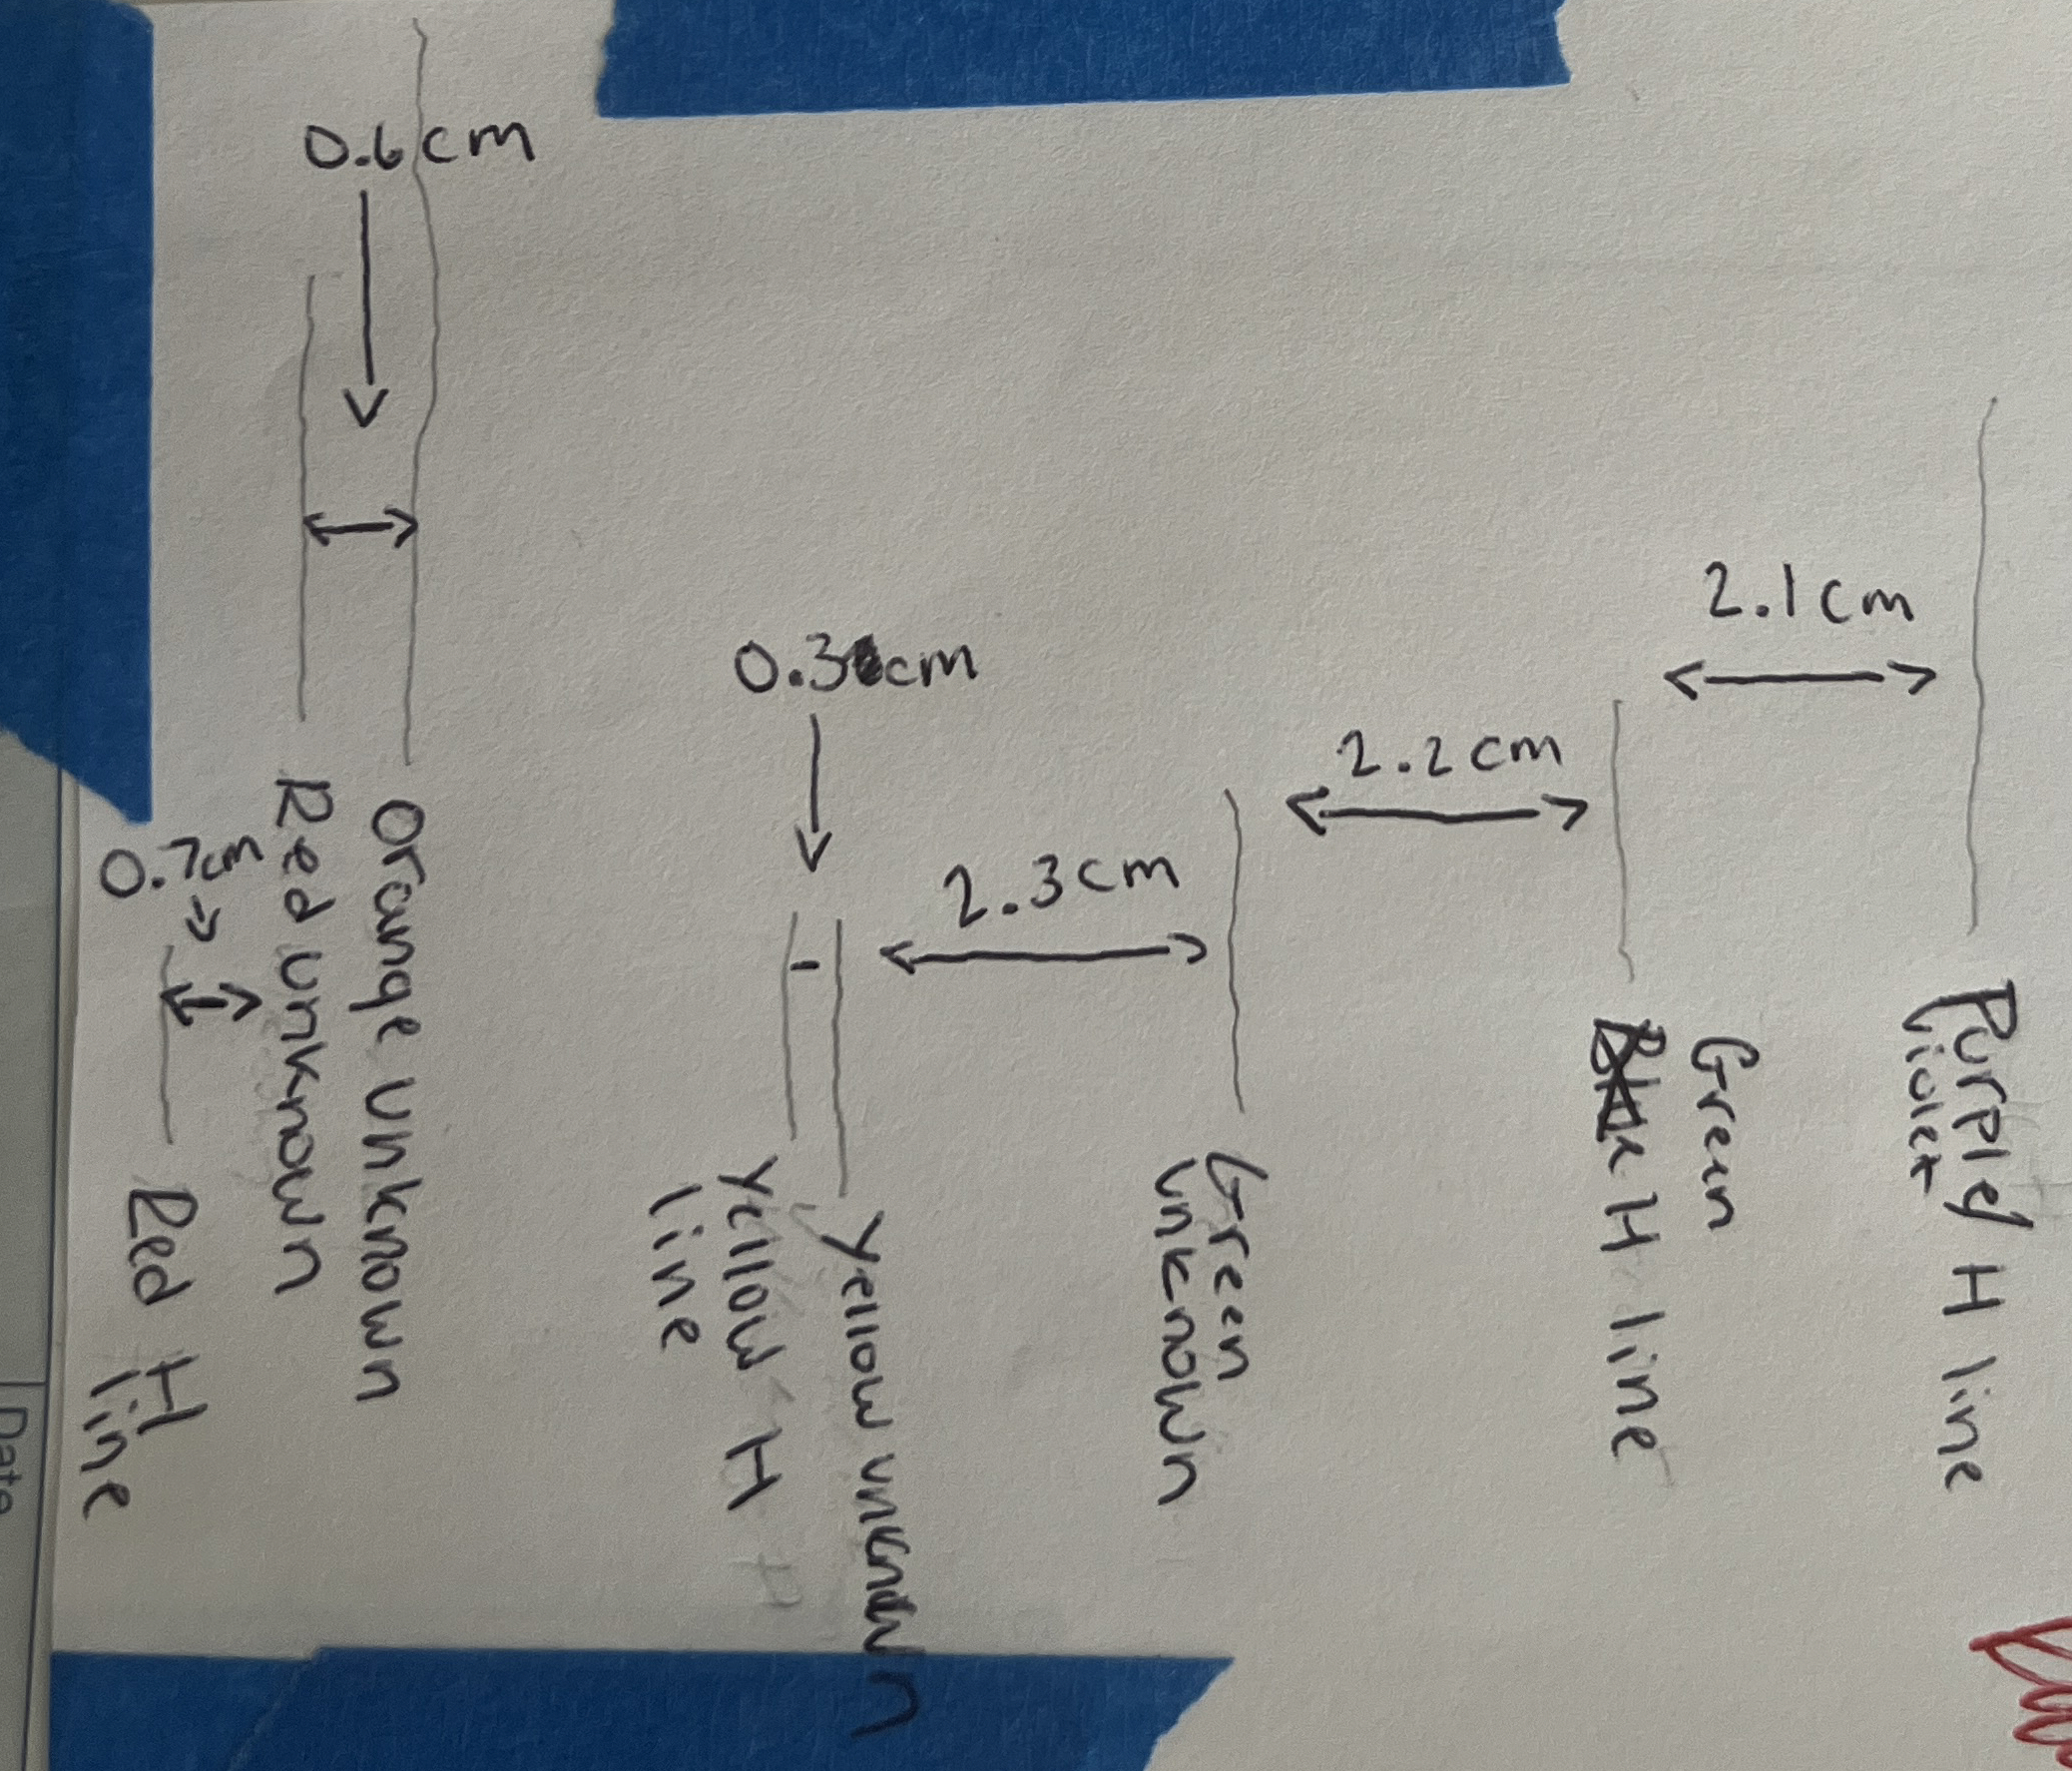 0.6cm
0.3cm
2.3cm
2.2cm
2.1cm
0.7cm
Red H
line
Red unknown
Orange unknown
Yellow H
line
Yellow unknown
Green
unknown
H line
Green
Purple/ H line
Violet
Date